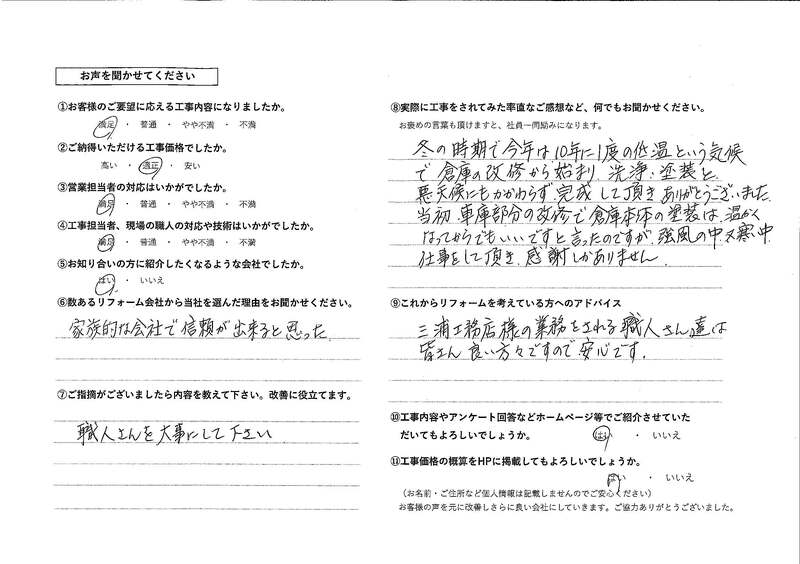 お声を聞かせてください
①お客様のご要望に応える工事内容になりましたか。
満足 ・ 普通 ・ やや不満 ・ 不満
②ご納得いただける工事価格でしたか。
高い ・ 適正 ・ 安い
③営業担当者の対応はいかがでしたか。
満足 ・ 普通 ・ やや不満 ・ 不満
④工事担当者、現場の職人の対応や技術はいかがでしたか。
満足 ・ 普通 ・ やや不満 ・ 不満
⑤お知り合いの方に紹介したくなるような会社でしたか。
はい ・ いいえ
⑥数あるリフォーム会社から当社を選んだ理由をお聞かせください。
家族的な会社で信頼が出来ると思った
⑦ご指摘がございましたら内容を教えて下さい。改善に役立てます。
職人さんを大事にして下さい
⑧実際に工事をされてみた率直なご感想など、何でもお聞かせください。
お褒めの言葉も頂けますと、社員一同励みになります。
冬の時期で今年は10年に1度の低温という気候
で倉庫の改修から始まり 洗浄・塗装と、
悪天候にもかかわらず完成して頂きありがとうございました
当初 車庫部分の改修で倉庫本体の塗装は、温かく
なってからでもいいですと言ったのですが、強風の中又寒い中
仕事をして頂き 感謝しかありません.
⑨これからリフォームを考えている方へのアドバイス
三浦工務店様の業務をされる職人さん達は
皆さん良い方々ですので安心です.
⑩工事内容やアンケート回答などホームページ等でご紹介させていた
だいてもよろしいでしょうか。 はい ・ いいえ
⑪工事価格の概算をHPに掲載してもよろしいでしょうか。
はい ・ いいえ
（お名前・ご住所など個人情報は記載しませんのでご安心ください）
お客様の声を元に改善しさらに良い会社にしていきます。ご協力ありがとうございました。